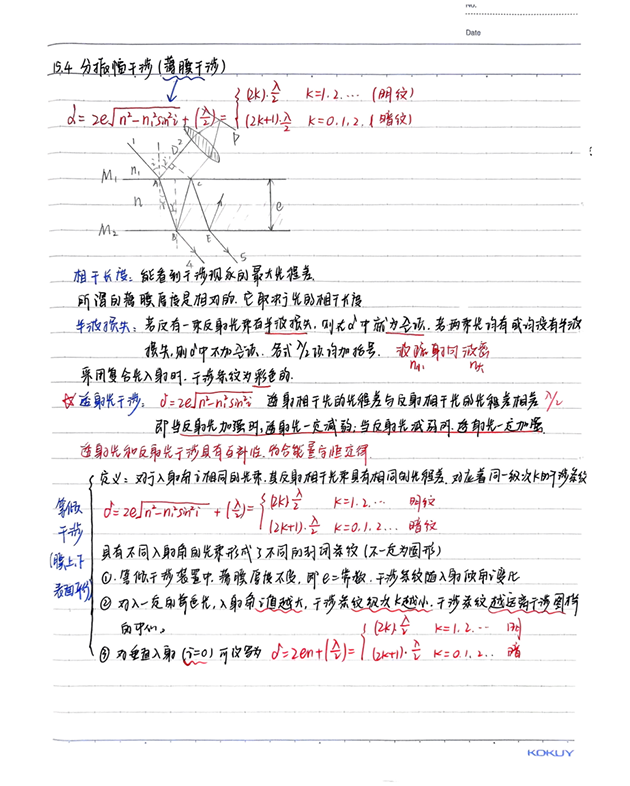 No.
Date
15.4 分振幅干涉(薄膜干涉)
δ = 2e√n²-n₁²sin²i + (λ/2) = { (2k)·λ/2 k=1.2.… (明纹)
(2k+1)·λ/2 k=0.1.2.( 暗纹)
1 D 2 P
M₁ n₁ i A C
n r e
M₂ B E
4 5
相干长度: 能看到干涉现象的最大光程差
所谓的薄膜厚度是相对的.它取决于光的相干长度
半波损失: 若仅有一束反射光来有半波损失,则在δ中需加上该项.若两束光均有或均没有半波
损失,则δ中不加该项. 各式λ/2该均加括号. 波疏射向波密
n小 n大
采用复合光入射时,干涉条纹为彩色的.
☆透射光干涉: δ=2e√n²-n₁²sin²i 透射相干光的光程差与反射相干光的光程差相差λ/2
即当反射光加强时,透射光一定减弱;当反射光减弱时,透射光一定加强.
透射光和反射光干涉具有互补性.符合能量守恒定律.
等倾干涉(膜上、下表面平行)
定义: 对于入射角i相同的光束,其反射相干光束具有相同的光程差.对应着同一级次k的干涉条纹
δ=2e√n²-n₁²sin²i + (λ/2) = { (2k)·λ/2 k=1.2.… 明纹
(2k+1)·λ/2 k=0.1.2.… 暗纹
具有不同入射角的光束形成了不同的封闭条纹(不一定为圆形)
①.等倾干涉装置中,薄膜厚度不变,即e=常数.干涉条纹随入射倾角i变化
② 对一定的单色光,入射角i值越大,干涉条纹级次k越小,干涉条纹越远离干涉图样
的中心。
③ 对垂直入射(i=0)可以写为 δ=2en+(λ/2)={ (2k)·λ/2 k=1.2.… 明
(2k+1)·λ/2 k=0.1.2.… 暗
KOKUY